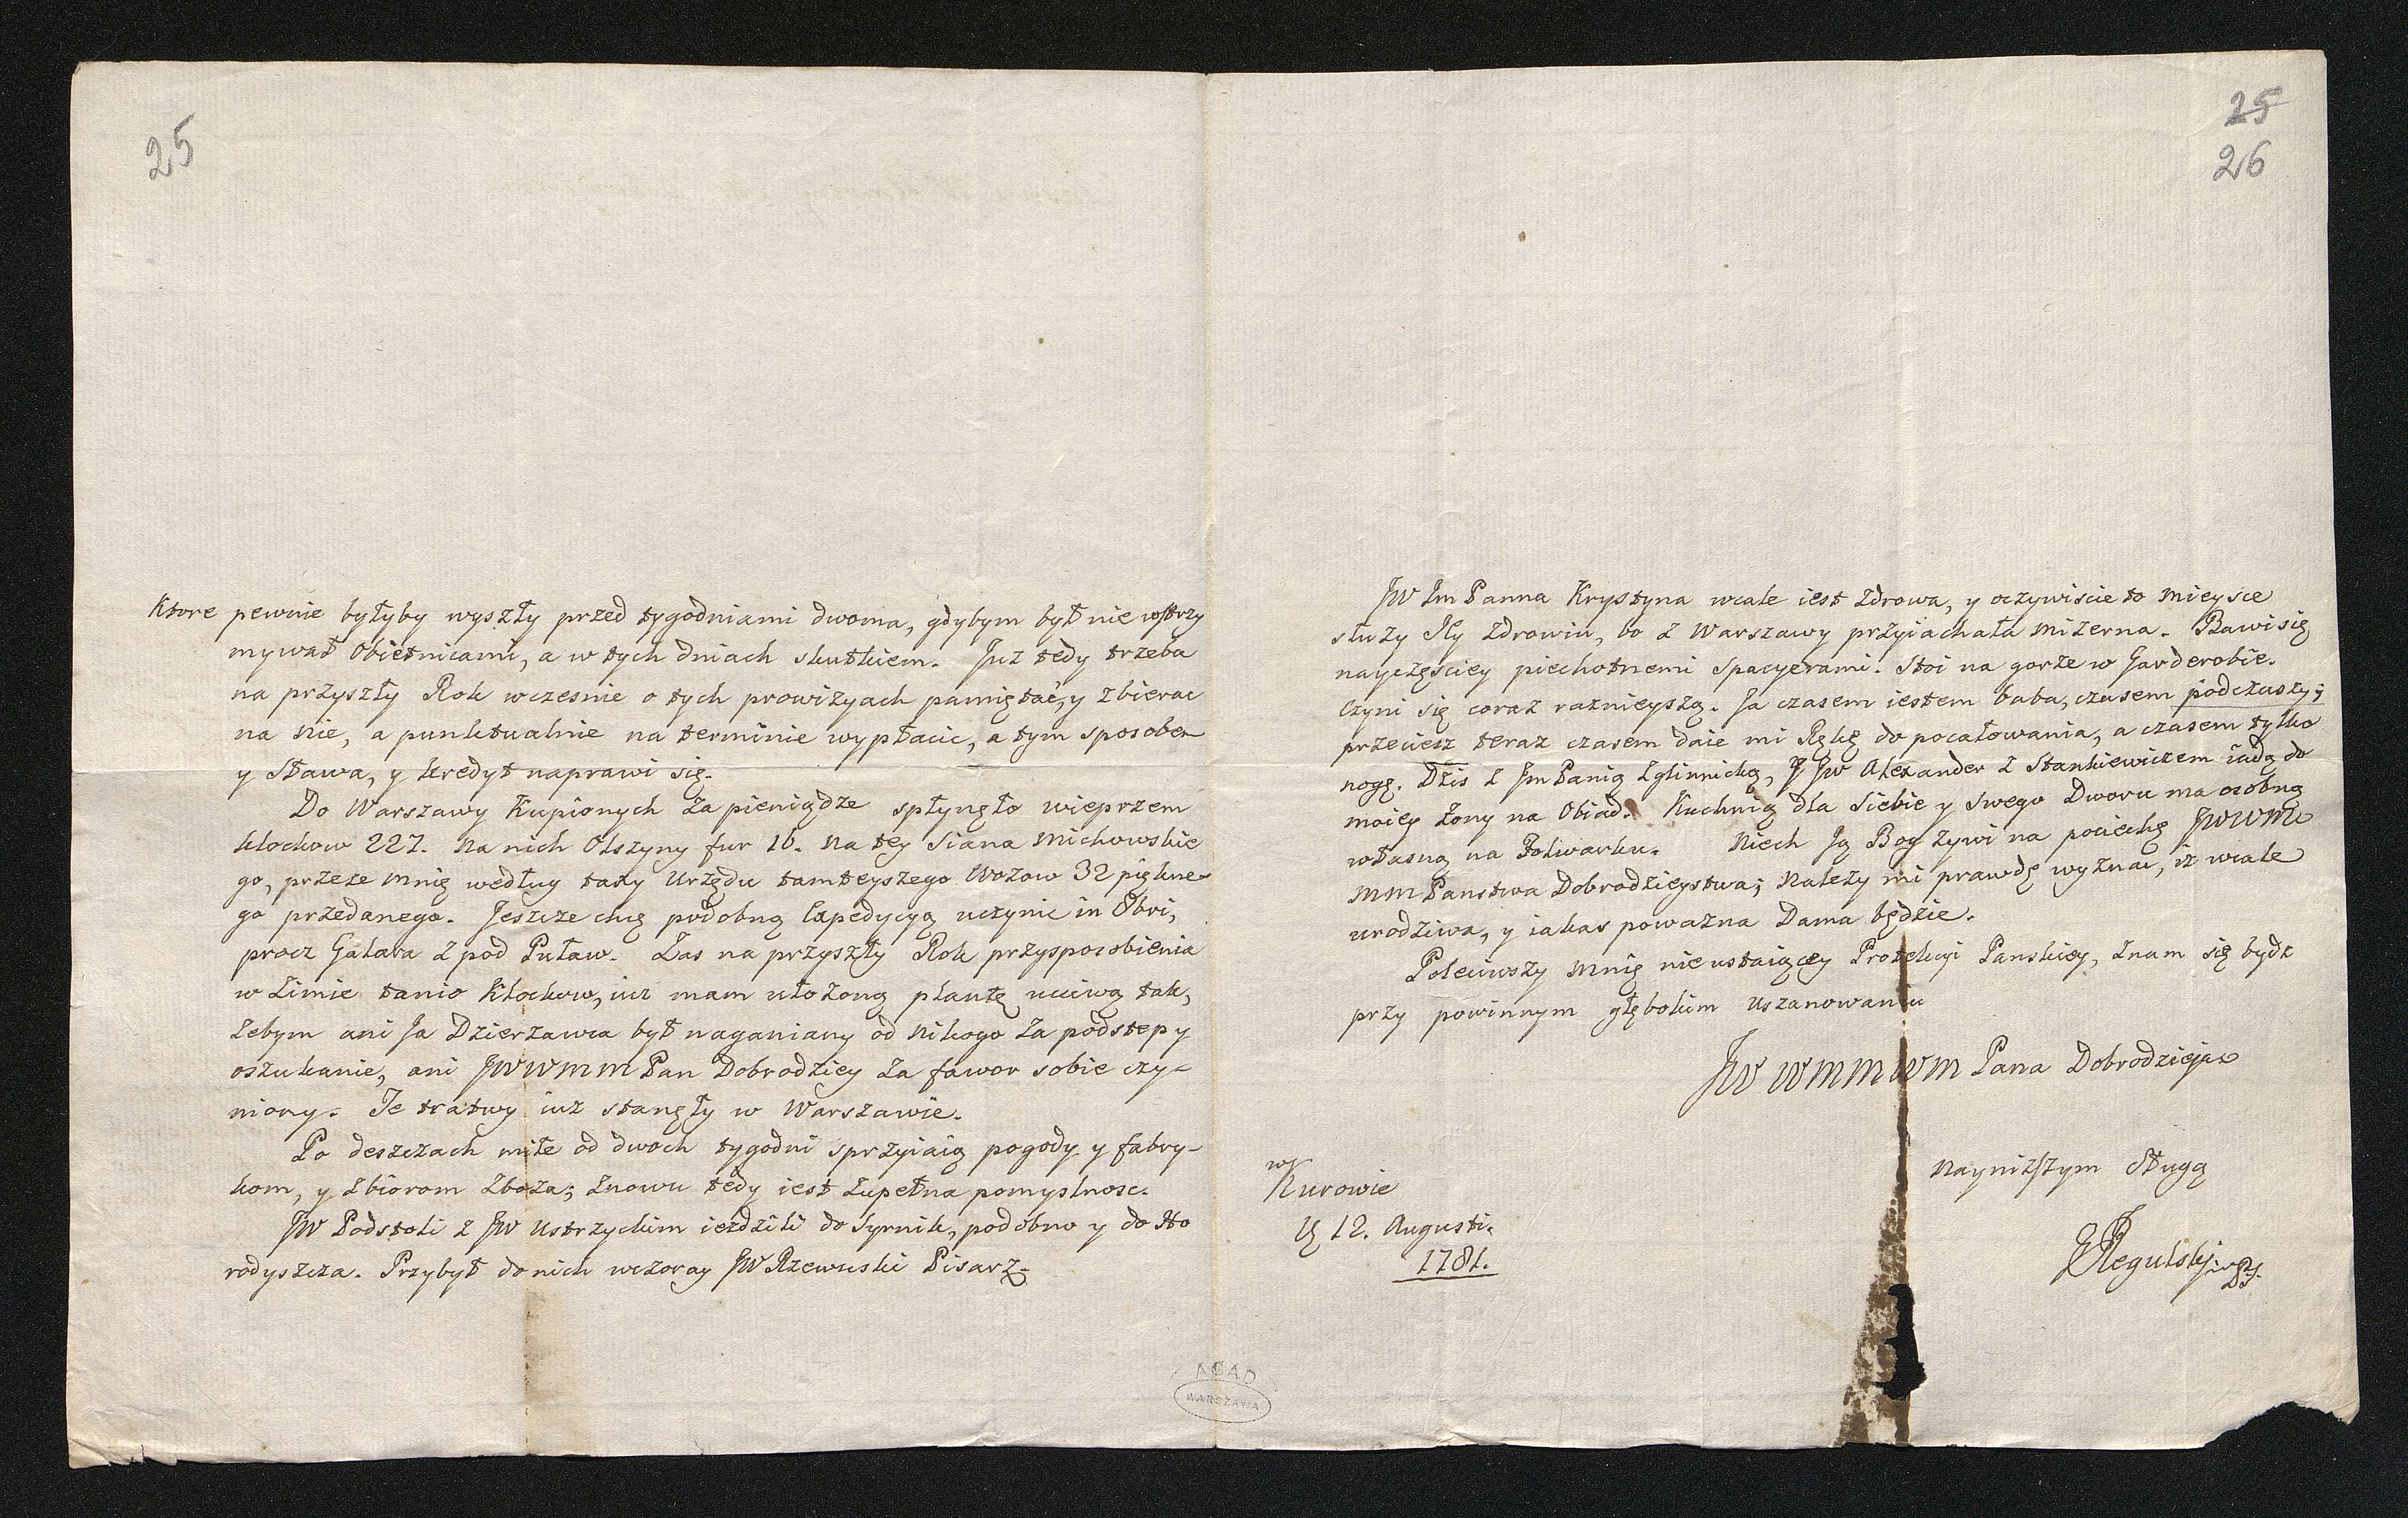 25
Ktore pewnie byłyby wyszły przed tygodniami dwoma, gdybym był nie wstrzy
mywał Obietnicami, a w tych dniach skutkiem. Juz tedy trzeba
na przyszły Rok wczesnie o tych prowizyach pamiętać, y zbierac
na nie, a punktualnie na terminie wypłacic, a tym sposobem
y Sława, y kredyt naprawi się.
Do Warszawy Kupionych za pieniądze spłynęło wieprzem
klockow 227. na nich Olszyny fur 16. na tey Siana Michowskie
go, przeze mnię według taxy Urzędu tamteyszego Wozow 32 piękne-
go przedanego. Jeszcze chcę podobną Expedycyą uczynic in 8bri,
procz Galara z pod Puław. Zas na przyszły Rok przysposobienia
w Zimie tanio Klockow, iuz mam ułożoną plantę uczciwą tak,
zebym ani Ja Dzierzawca był naganiany od nikogo za podstępy
oszukanie, ani JWWMM Pan Dobrodziey za fawor sobie czy-
niony. Te tratwy iuz stanęły w Warszawie.
Po deszczach miłe od dwoch tygodni sprzyiaią pogody y fabry-
kom, y zbiorom Zboza; znowu tedy iest zupełna pomyslnosc.
JW Podstoli z JW Ustrzyckim iezdzili do Syrnik, podobno y do Ho
rodyszcza. Przybył do nich wczoray JW Rzewuski Pisarz.
25
26
JW Im Panna Krystyna wcale iest zdrowa, y oczywiscie to mieysce
słuzy Jey zdrowiu, bo z Warszawy przyiachała mizerna. Bawi się
nayczęsciey piechotnemi spacyerami. Stoi na gorze w Garderobie.
Czyni się coraz raznieyszą. Ja czasem iestem baba, czasem podczaszy;
przeciesz teraz czasem daie mi Rękę do pocałowania, a czasem tylko
nogę. Dzis z Jm Panią Zglinnicką, y JW Alexander z Stankiewiczem iadą do
moiey Zony na Obiad. Kuchnią dla siebie y swego Dworu ma osobną
własną na Folwarku. Niech Ją Bog zywi na pociechę JWWM
MM Panstwa Dobrodzieystwa; nalezy mi prawdę wyznac, iz wcale
urodziwa, y iakas powazna Dama będzie.
Poleciwszy mnię nieustaiącey Protekcyi Panskiey, znam się bydz
przy powinnym głębokim uszanowaniu
JW WMM WM Pana Dobrodzieja
w
Kurowie
12. Augusti.
1781.
Naynizszym Sługą
Regulski
AGAD
WARSZAWA